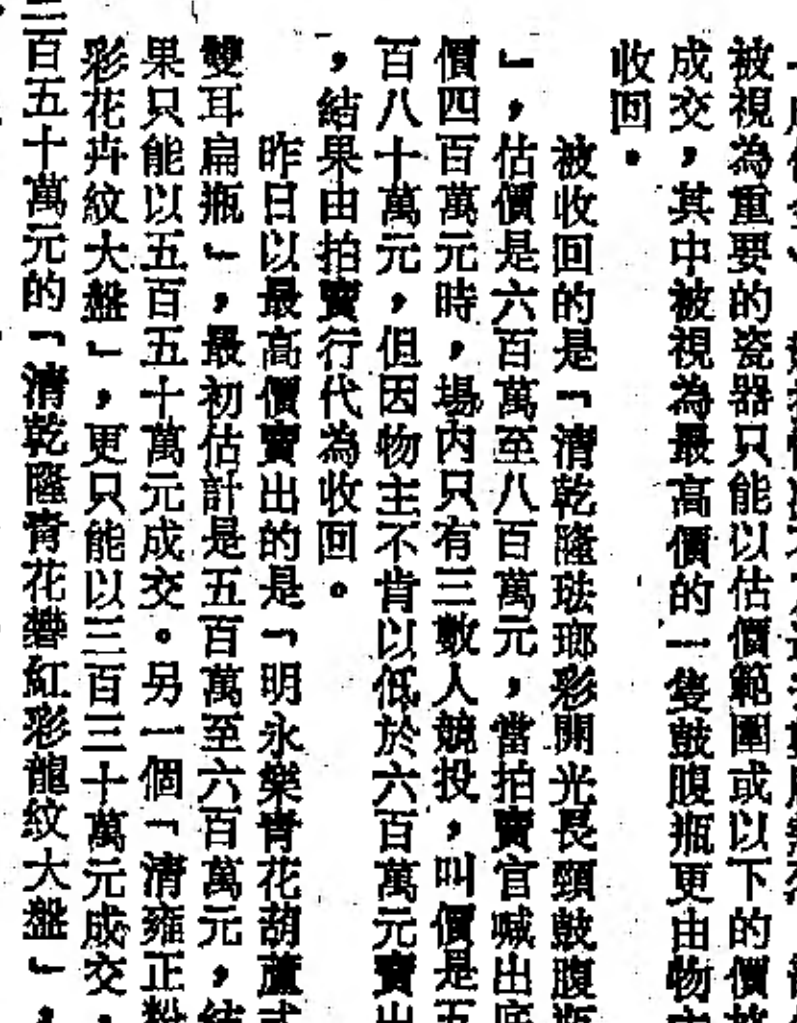 被視為重要的瓷器只能以估價範圍或以下的價
成交，其中被視為最高價的一隻鼓腹瓶更由物主
收回。
被收回的是「清乾隆琺瑯彩開光長頸鼓腹瓶
」，估價是六百萬至八百萬元，當拍賣官喊出底
價四百萬元時，場內只有三數人競投，叫價是五
百八十萬元，但因物主不肯以低於六百萬元賣出
，結果由拍賣行代為收回。
昨日以最高價賣出的是「明永樂青花葫蘆式
雙耳扁瓶」，最初估計是五百萬至六百萬元，結
果只能以五百五十萬元成交。另一個「清雍正粉
彩花卉紋大盤」，更只能以三百三十萬元成交，
三百五十萬元的「清乾隆青花礬紅彩龍紋大盤」，